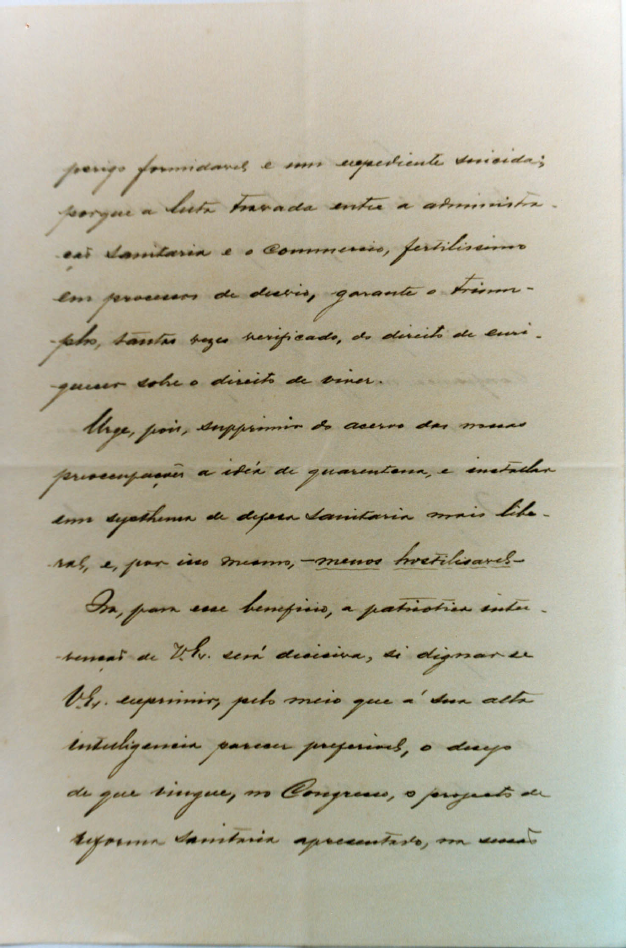 perigo formidavel e um expediente suicida;
porque a luta travada entre a administra-
ção sanitaria e o commercio, fertilissimo
em processos de desvio, garante o trium-
pho, tantas vezes verificado, do direito de enri-
quecer sobre o direito de viver.
Urge, pois, supprimir do acervo das nossas
preoccupações a idéa de quarentena, e installar
um systhema de defesa sanitaria mais libe-
ral, e, por isso mesmo, – menos hostilisavel –
Ora, para esse beneficio, a patriotica inter-
venção de V. Ex. será decisiva, si dignar-se
V. Ex. exprimir, pelo meio que á sua alta
intelligencia parecer preferivel, o desejo
de que vingue, no Congresso, o projecto de
reforma sanitaria apresentado, na sessão